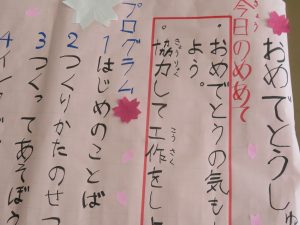 おめでとうし
今日のめあて
きょう
・おめでとうの気も
よう。
・協力して工作をしよ
きょうりょく
こうさく
プログラム
1はじめのことば
2つくりかたのせつ
3つくってあそぼう
4インタ